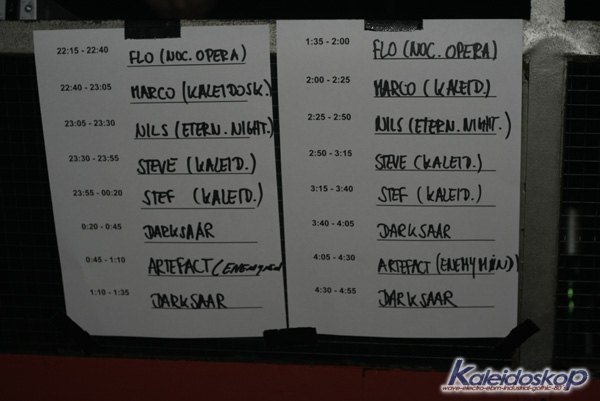 22:15 - 22:40 FLO (NOC. OPERA)
22:40 - 23:05 MARCO (KALEIDOSK.)
23:05 - 23:30 NILS (ETERN. NIGHT.)
23:30 - 23:55 STEVE (KALEID.)
23:55 - 00:20 STEF (KALEID.)
0:20 - 0:45 DARKSAAR
0:45 - 1:10 ARTEFACT (ENEMYMIN
1:10 - 1:35 DARKSAAR
1:35 - 2:00 FLO (NOC. OPERA)
2:00 - 2:25 MARCO (KALEID.)
2:25 - 2:50 NILS (ETERN. NIGHT.)
2:50 - 3:15 STEVE (KALEID.)
3:15 - 3:40 STEF (KALEID.)
3:40 - 4:05 DARKSAAR
4:05 - 4:30 ARTEFACT (ENEMYMIN)
4:30 - 4:55 DARKSAAR
Kaleidoskop
wave-electro-ebm-industrial-gothic-80